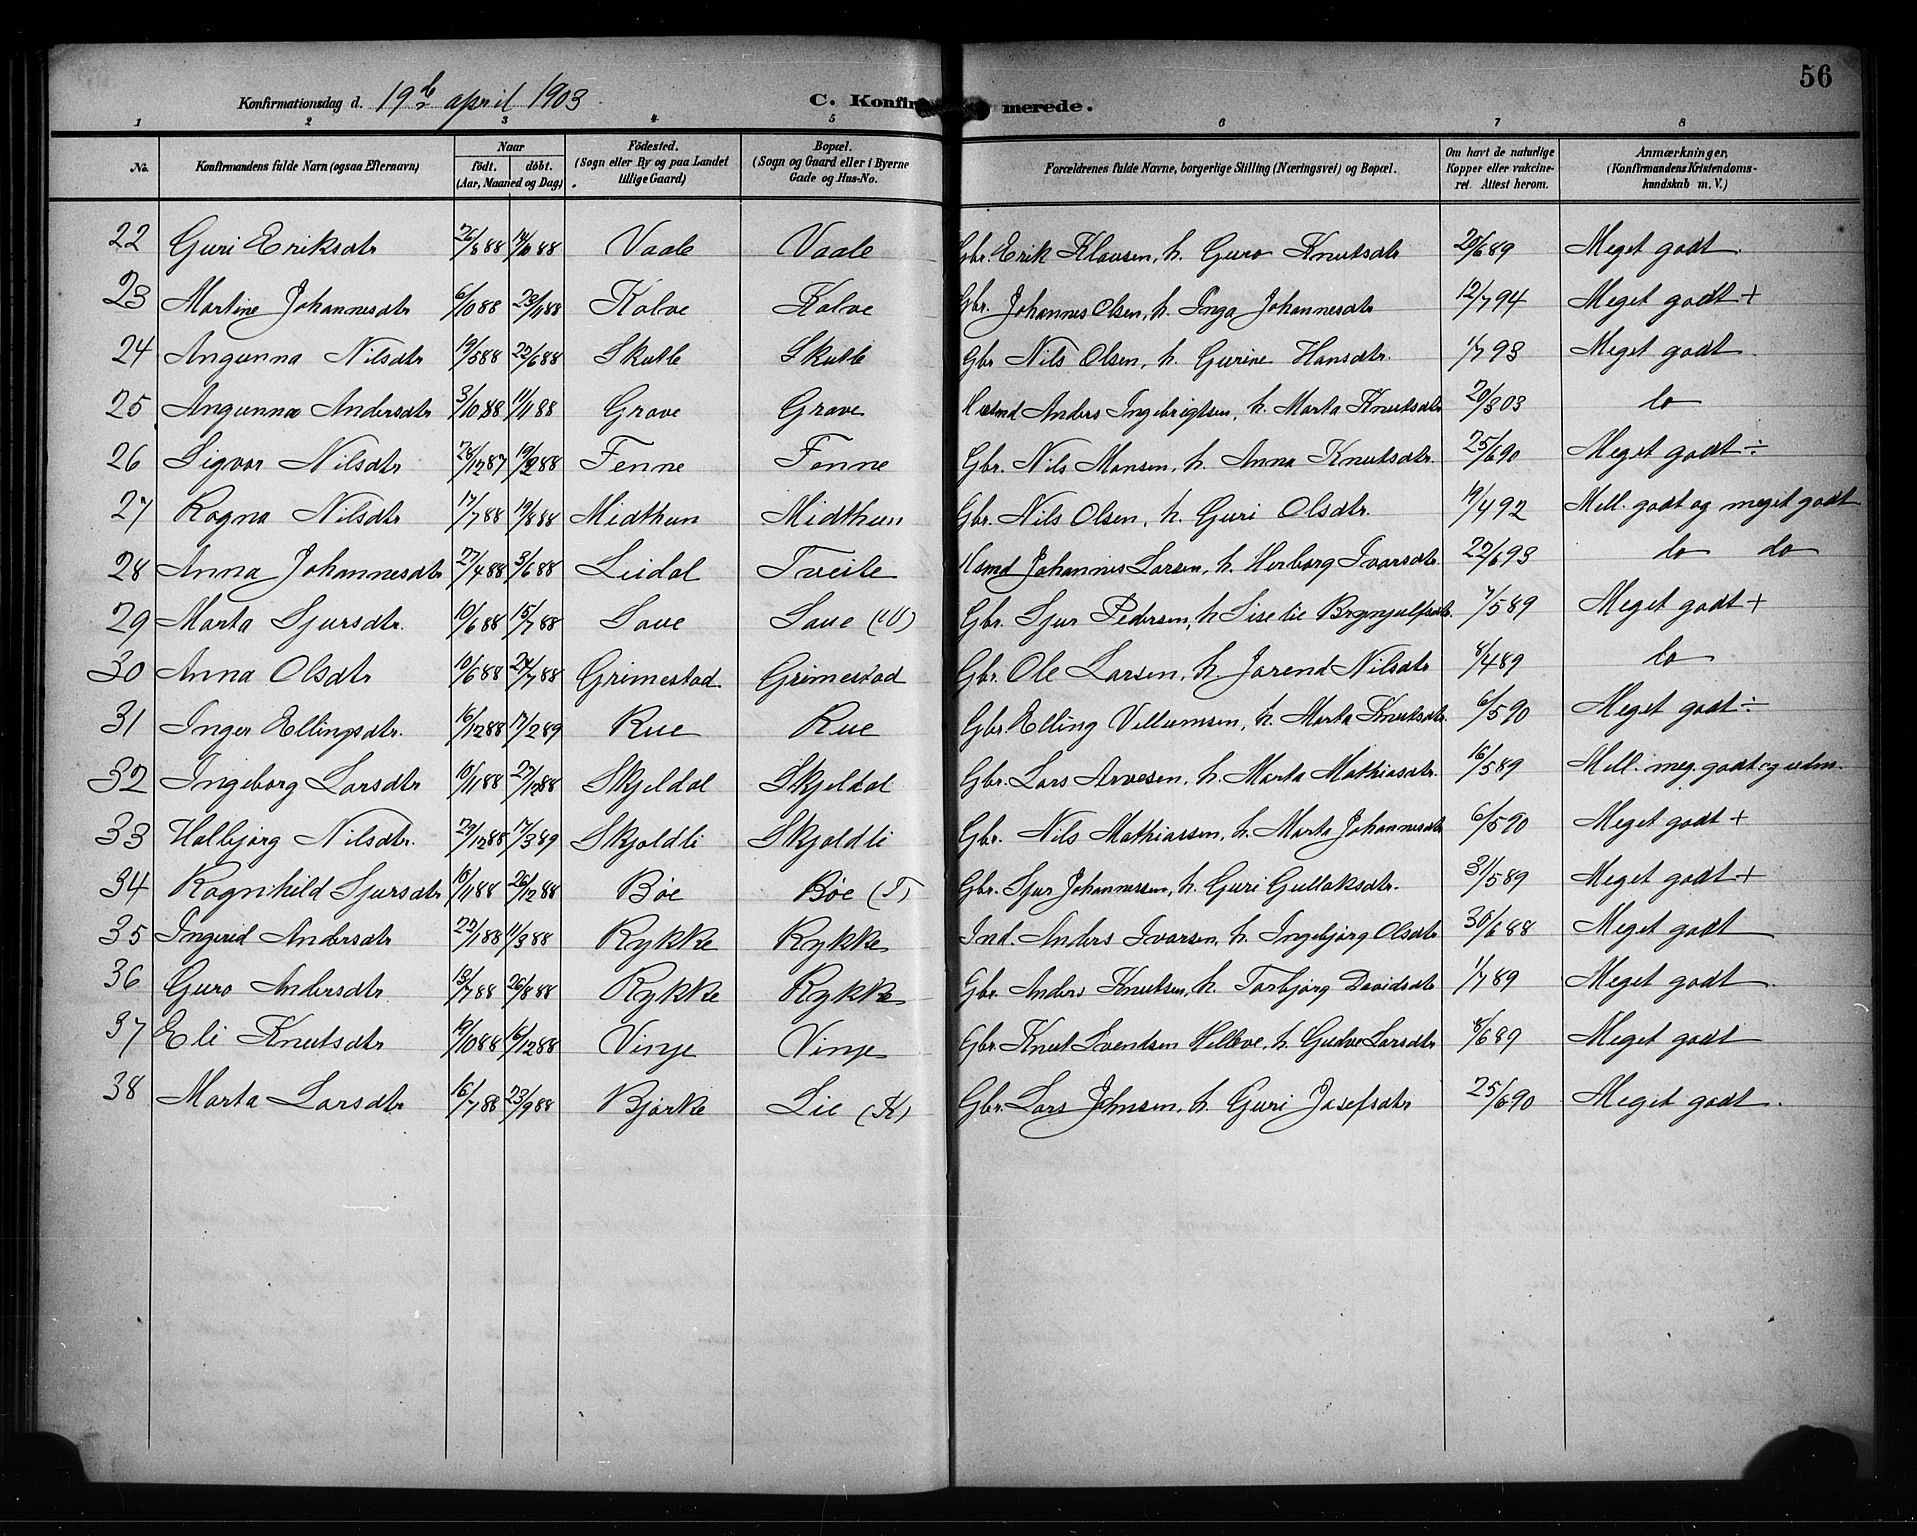 56
Konfirmationsdag d. 19de april 1903 C. Konfirmerede.
1 2 3 4 5 6 7 8
No. Konfirmandens fulde Navn (ogsaa Efternavn) Naar født. døbt. (Aar, Maaned og Dag) Fødested. (Sogn eller By og paa Landet tillige Gaard) Bopæl. (Sogn og Gaard eller i Byerne Gade og Hus-No. Forældrenes fulde Navne, borgerlige Stilling (Næringsvei) og Bopæl. Om havt de naturlige Kopper eller vakcineret. Attest herom. Anmærkninger, (Konfirmandens Kristendomskundskab m. V.)
22 Guri Eriksdtr 26/688 14/1088 Vaale Vaale Gbr. Erik Klausen, h. Guro Knutsdtr 25/689 Meget godt.
23 Martine Johannesdtr 6/1088 23/1188 Kolve Kolve Gbr. Johannes Olsen, h. Inga Johannesdtr 12/794 Meget godt +
24 Angunna Nilsdtr 19/588 22/688 Skutle Skutle Gbr Nils Olsen, h. Gurine Hansdtr. 1/793 Meget godt
25 Angunna Andersdtr 3/1088 11/1188 Grove Grove Husmd Anders Ingebrigtsen, h. Marta Knutsdtr 20/303 do
26 Sigvor Nilsdtr 28/1287 19/288 Fenne Fenne Gbr. Nils Monsen, h. Anna Knutsdtr. 25/690 Meget godt ÷
27 Ragna Nilsdtr 17/788 19/888 Midthun Midthun Gbr. Nils Olsen, h. Guri Olsdtr. 19/492 Mell. godt og meget godt
28 Anna Johannesdtr 27/488 3/688 Lidal Tveite Hsmd Johannes Larsen, h. Herborg Ivarsdtr. 22/693 do do
29 Marta Sjursdtr. 10/688 15/788 Saue Saue (M) Gbr. Sjur Pedersen, h. Brynjulfsdtr. 7/589 Meget godt +
30 Anna Olsdtr 10/688 24/788 Grimestad Grimestad Gbr. Ole Larsen, h. Jorend Nilsdtr 8/489 do
31 Inger Ellingsdtr. 16/1288 17/289 Rue Rue Gbr. Elling Villumsen, h. Marta Knutsdtr. 6/590 Meget godt ÷
32 Ingeborg Larsdtr 10/1188 27/1288 Skjeldal Skjeldal Gbr. Lars Arvesen, h. Marta Mathiasdtr. 16/589 Mell. meg. godt og udm.
33 Halbjørg Nilsdtr. 29/1288 17/389 Skjoldli Skjoldli Gbr. Nils Mathiassen, h. Marta Johannesdtr 6/590 Meget godt +
34 Ragnhild Sjursdtr 16/1188 26/1288 Bøe Bøe (T) Gbr. Sjur Johannessen, h. Guri Gullaksdtr. 31/589 Meget godt +
35 Ingerid Andersdtr 22/188 11/388 Rykke Rykke Ind. Anders Ivarsen, h. Ingebjørg Olsdtr 30/688 Meget godt
36 Guro Andersdtr. 13/788 26/888 Rykke Rykke Gbr. Anders Knutsen, h. Torbjørg Davidsdtr 1/789 Meget godt.
37 Eli Knutsdtr 19/1088 16/1288 Vinje Vinje Gbr Knut Svendsen Helleve, h. Gudve Larsdtr 8/689 Meget godt
38 Marta Larsdtr 16/788 23/988 Bjørke Lie (K) Gbr. Lars Johnsen, h. Guri Josefsdtr 25/690 Meget godt.